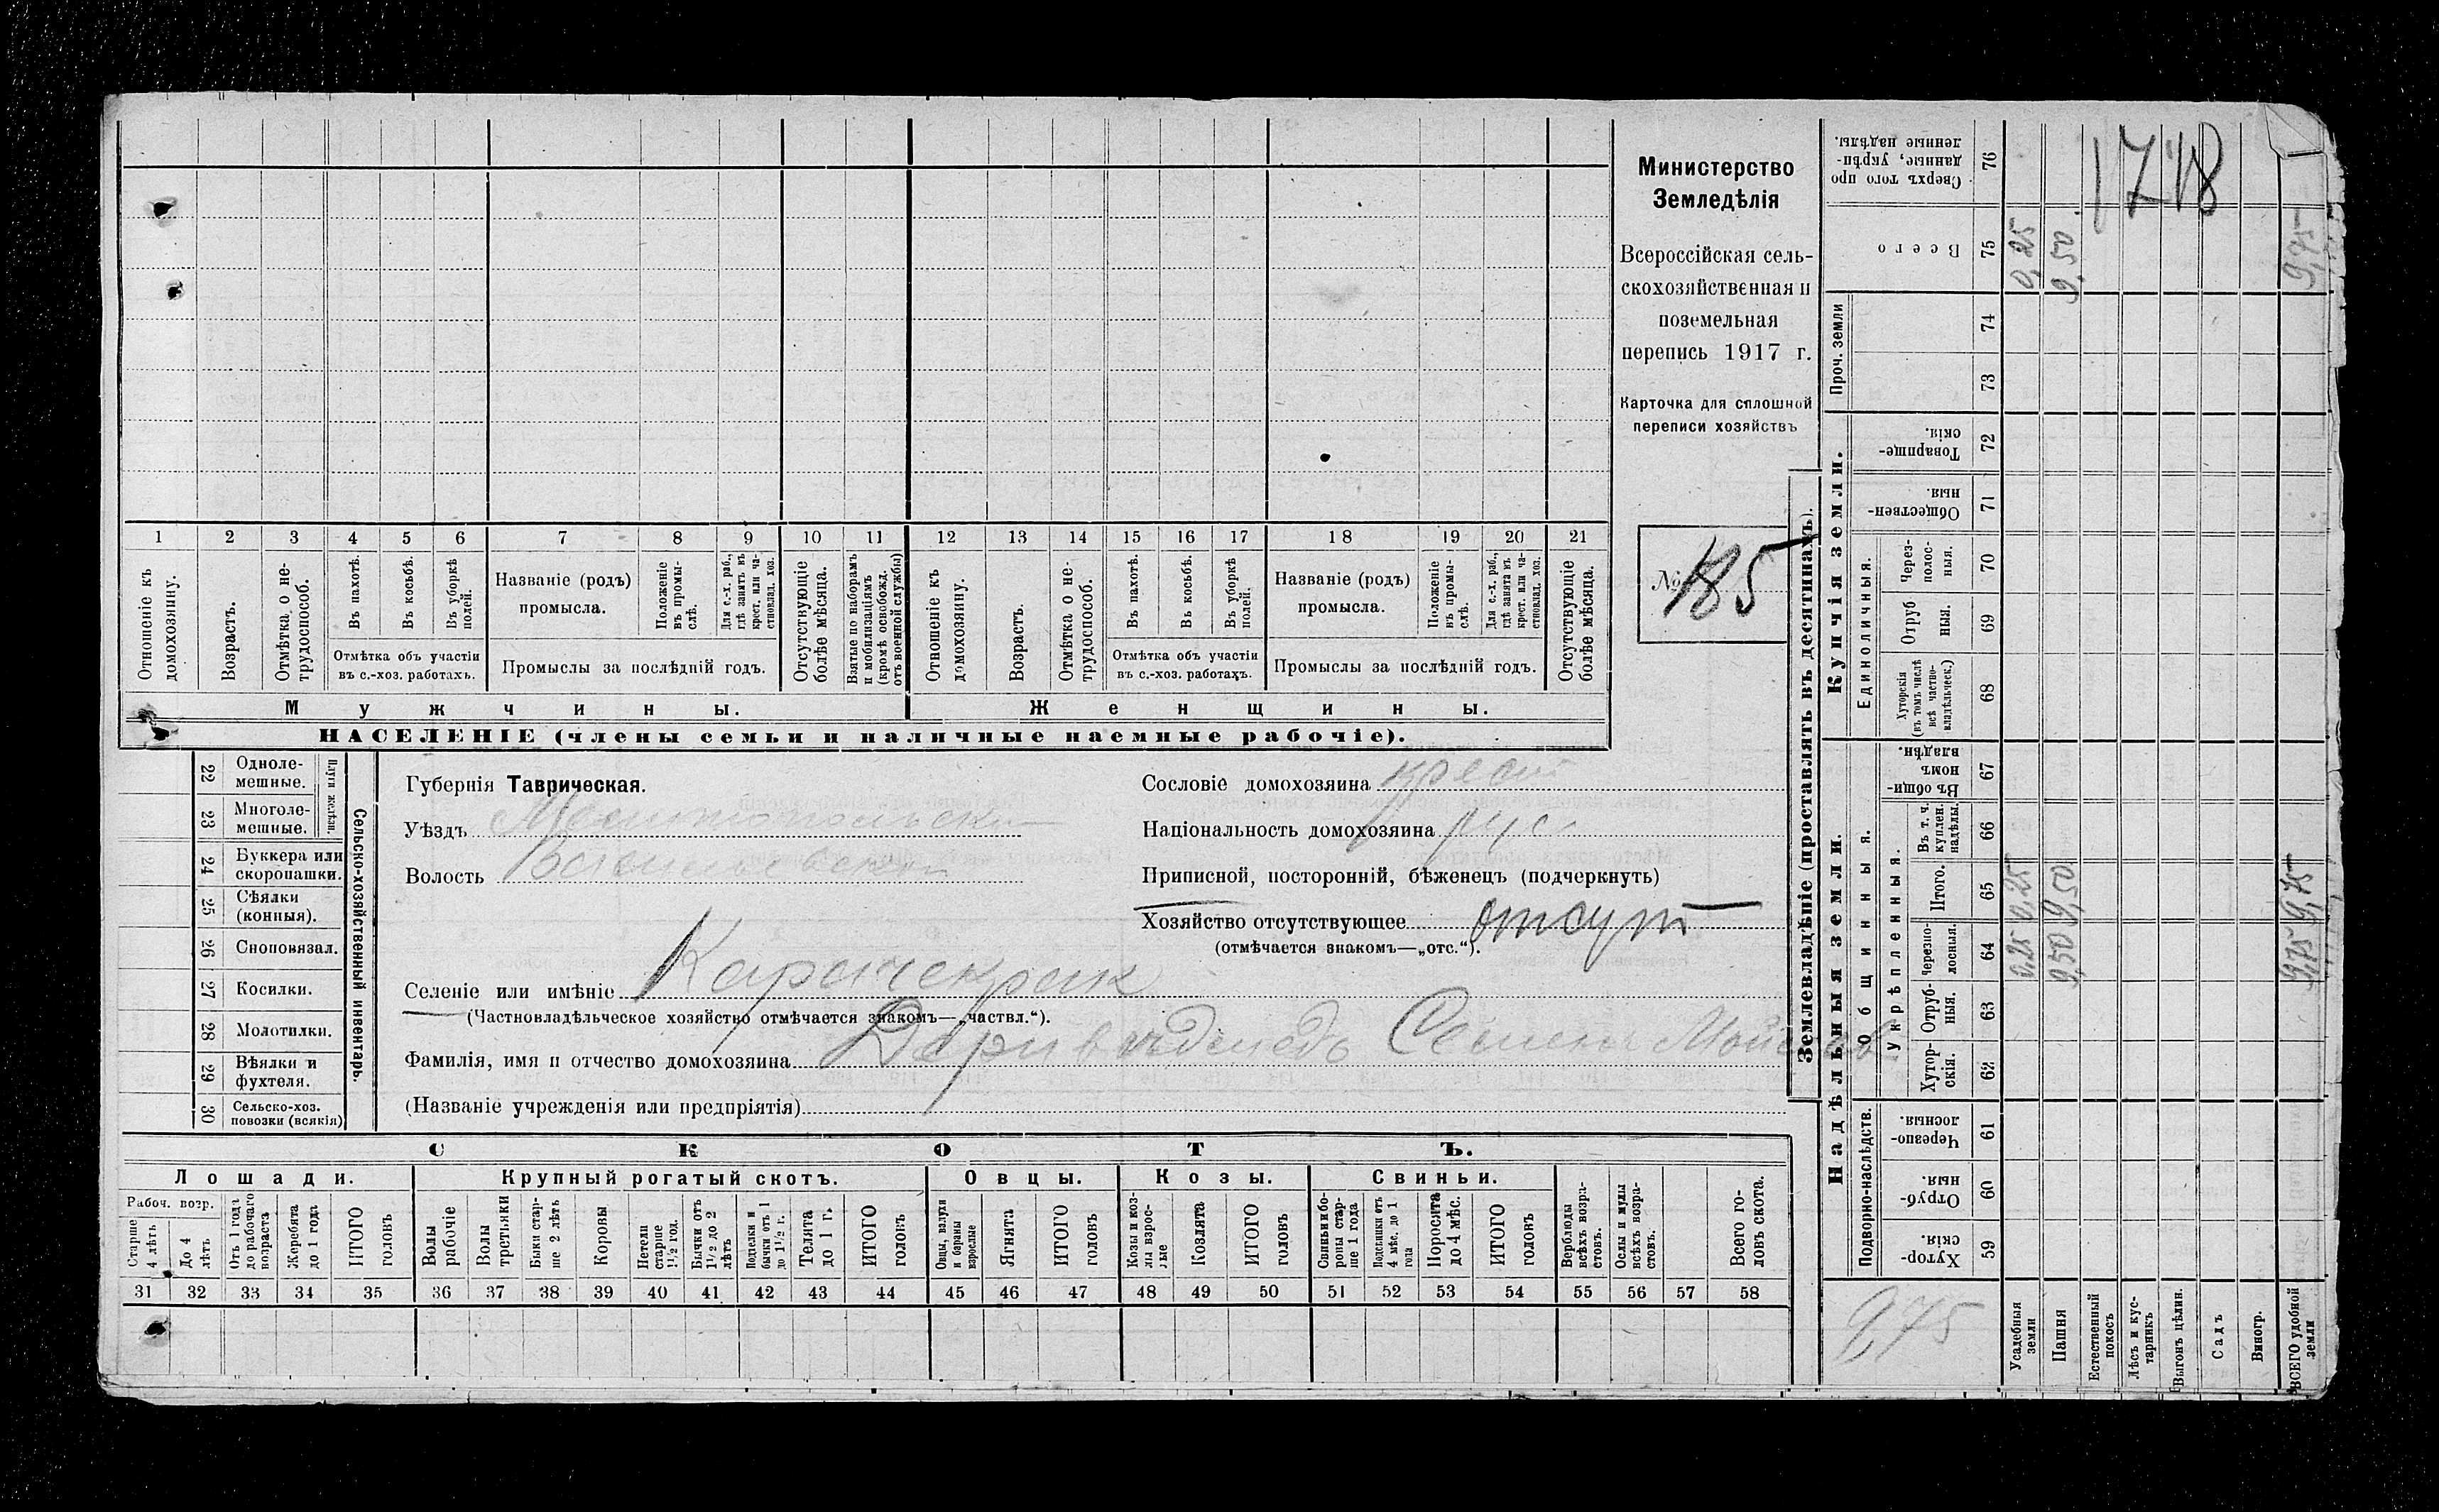 Министерство
Земледѣлія
Всероссійская сель-
скохозяйственная и
поземельная
перепись 1917 г.
Карточка для сплошной
переписи хозяйствъ
№ 185
1 2 3 4 5 6 7 8 9 10 11 12 13 14 15 16 17 18 19 20 21
Отношеніе къ домохозяину.
Возрастъ.
Отмѣтка о не-трудоспособ.
Въ пахотѣ.
Въ косьбѣ.
Въ уборкѣ полей.
Отмѣтка объ участіи
въ с.-хоз. работахъ.
Названіе (родъ)
промысла.
Положеніе въ промы-слѣ.
Для с.-х. раб., гдѣ занятъ въ крест. или ча-стновлад. хоз.
Промыслы за послѣдній годъ.
Отсутствующіе болѣе мѣсяца.
Взятые по наборамъ и мобилизаціямъ (кромѣ освобожд. отъ военной службы)
Отношеніе къ домохозяину.
Возрастъ.
Отмѣтка о не-трудоспособ.
Въ пахотѣ.
Въ косьбѣ.
Въ уборкѣ полей.
Отмѣтка объ участіи
въ с.-хоз. работахъ.
Названіе (родъ)
промысла.
Положеніе въ промы-слѣ.
Для с.-х. раб., гдѣ занята въ крест. или ча-стновлад. хоз.
Промыслы за послѣдній годъ.
Отсутствующіе болѣе мѣсяца.
Мужчины. Женщины.
НАСЕЛЕНІЕ (члены семьи и наличные наемные рабочіе).
22 Одноле-мешные.
23 Многоле-мешные.
Плуги желѣзн.
24 Буккера или скоропашки.
25 Сѣялки (конныя).
26 Сноповязал.
27 Косилки.
28 Молотилки.
29 Вѣялки и фухтеля.
30 Сельско-хоз. повозки (всякія)
Сельско-хозяйственный инвентарь.
Губернія Таврическая.
Уѣздъ Мелитопольскій
Волость Васильевская
Селеніе или имѣніе Карачекрак
(Частновладѣльческое хозяйство отмѣчается знакомъ—„частвл.“).
Фамилія, имя и отчество домохозяина Семен
(Названіе учрежденія или предпріятія)
Сословіе домохозяина крест
Національность домохозяина рус
Приписной, посторонній, бѣженецъ (подчеркнуть)
Хозяйство отсутствующее отсут
(отмѣчается знакомъ—„отс.“).
СКОТЪ.
Лошади. Крупный рогатый скотъ. Овцы. Козы. Свиньи.
Рабоч. возр.
Старше 4 лѣтъ
До 4 лѣтъ
Отъ 1 года до рабочаго возраста
Жеребята до 1 года
ИТОГО головъ
Волы рабочіе
Волы третьяки
Быки стар-ше 2 лѣтъ
Коровы
Нетели старше 1½ год.
Бычки отъ 1½ до 2 лѣтъ
Подтелки и бычки отъ 1 до 1½ г.
Телята до 1 г.
ИТОГО головъ
Овцы, валухи и бараны взрослые
Ягнята
ИТОГО головъ
Козы и коз-лы взрос-лые
Козлята
ИТОГО головъ
Свиньи и бо-ровы стар-ше 1 года
Подсвинки отъ 4 мѣс. до 1 года
Поросята до 4 мѣс.
ИТОГО головъ
Верблюды всѣхъ возра-стовъ.
Ослы и мулы всѣхъ возра-стовъ.
Всего го-ловъ скота.
31 32 33 34 35 36 37 38 39 40 41 42 43 44 45 46 47 48 49 50 51 52 53 54 55 56 57 58
Землевладѣніе (проставлять въ десятинахъ).
1718
76 Сверхъ того про данные, укрѣп-ленные надѣлы.
75 Всего 0,25 9,50 9,75
Проч. земли
74
73
Купчія земли.
72 Товарище-скія.
71 Обществен-ныя.
Единоличныя.
70 Через-полос-ныя.
69 Отруб ныя.
68 Хуторскія (въ томъ числѣ всѣ частно-владѣльческ.)
Надѣльныя земли.
Общинныя.
67 Въ общи-номъ владѣн.
Укрѣпленныя.
66 Въ т. ч. куплен. надѣлы.
65 Итого. 0,25 9,50 9,75
64 Черезпо-лосныя. 0,25 9,50 9,75
63 Отруб-ныя.
62 Хутор-скія.
Подворно-наслѣдств.
61 Черезпо-лосныя.
60 Отруб-ныя.
59 Хутор-скія.
9,75
Усадебныя земли
Пашня
Естественный покосъ
Лѣсъ и кус-тарникъ
Выгонъ цѣлин.
Садъ
Виногр.
ВСЕГО удобной земли